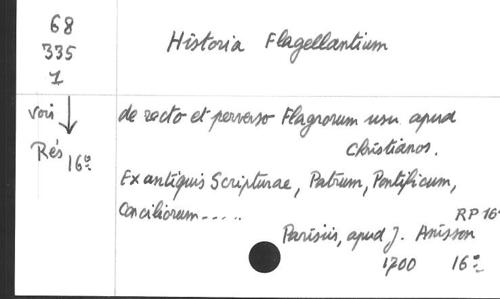 68
335
1
Historia Flagellantium
voir
Rés 16º
de recto et perverso Flagrorum usu apud
Christianos.
Ex antiquis Scripturae, Patrum, Pontificum,
Conciliorum.....
RP 16º
Parisiis, apud J. Anisson
1700 16º